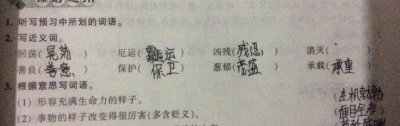 1. 听写预习中所划的词语。
2. 写近义词。
回荡(晃荡) 厄运(噩运) 凶残(残忍) 消灭( )
善良(善意) 保护(保卫) 葱郁(茂盛) 承载(承重)
3. 根据意思写词语。
(1) 形容充满生命力的样子。 (生机勃勃)
(2) 事物的样子改变得很厉害(多含贬义)。 (面目全非)